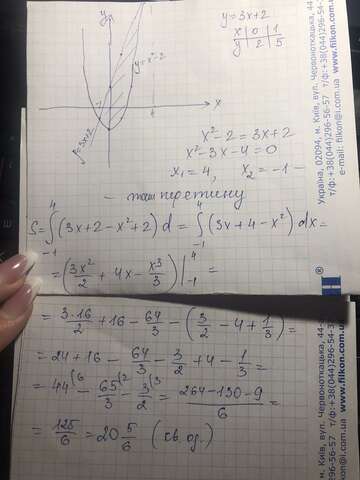 y
y=3x+2
x 0 1
y 2 5
y=x²-2
x
4
y=3x+2
x²-2=3x+2
x²-3x-4=0
x₁=4, x₂=-1 -
- точки перетину
S=∫₋₁⁴(3x+2-x²+2)d=∫₋₁⁴(3x+4-x²)dx=
=(3x²/2+4x-x³/3)|₋₁⁴=
=3·16/2+16-64/3-(3/2-4+1/3)=
=24+16-64/3-3/2+4-1/3=
=44⁽⁶-65⁽²/3-3⁽³/2=264-130-9/6=
=125/6=20 5/6 (кв. од.)
Україна, 02094, м. Київ, вул. Червоноткацька, 44-
т/ф:+38(044)296-56-57
e-mail: filkon@i.com.ua www.filkon.com.ua
®